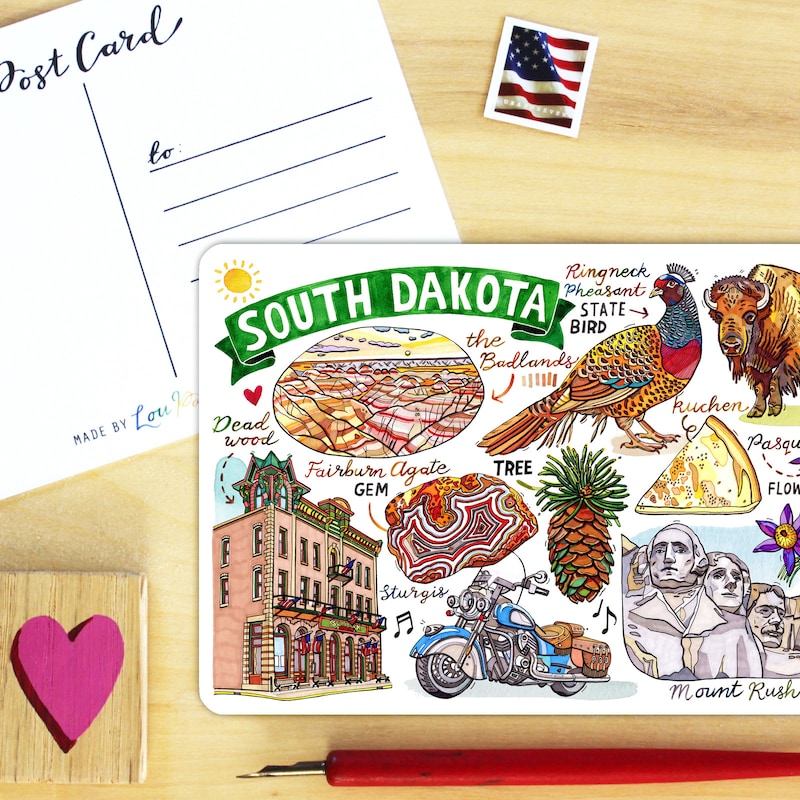 Post Card
to:
MADE BY Lou
SOUTH DAKOTA
Ringneck
Pheasant
STATE
BIRD
the
Badlands
kuchen
Dead
wood
Fairburn Agate
GEM
TREE
Pasqu
FLOW
Sturgis
Mount Rush